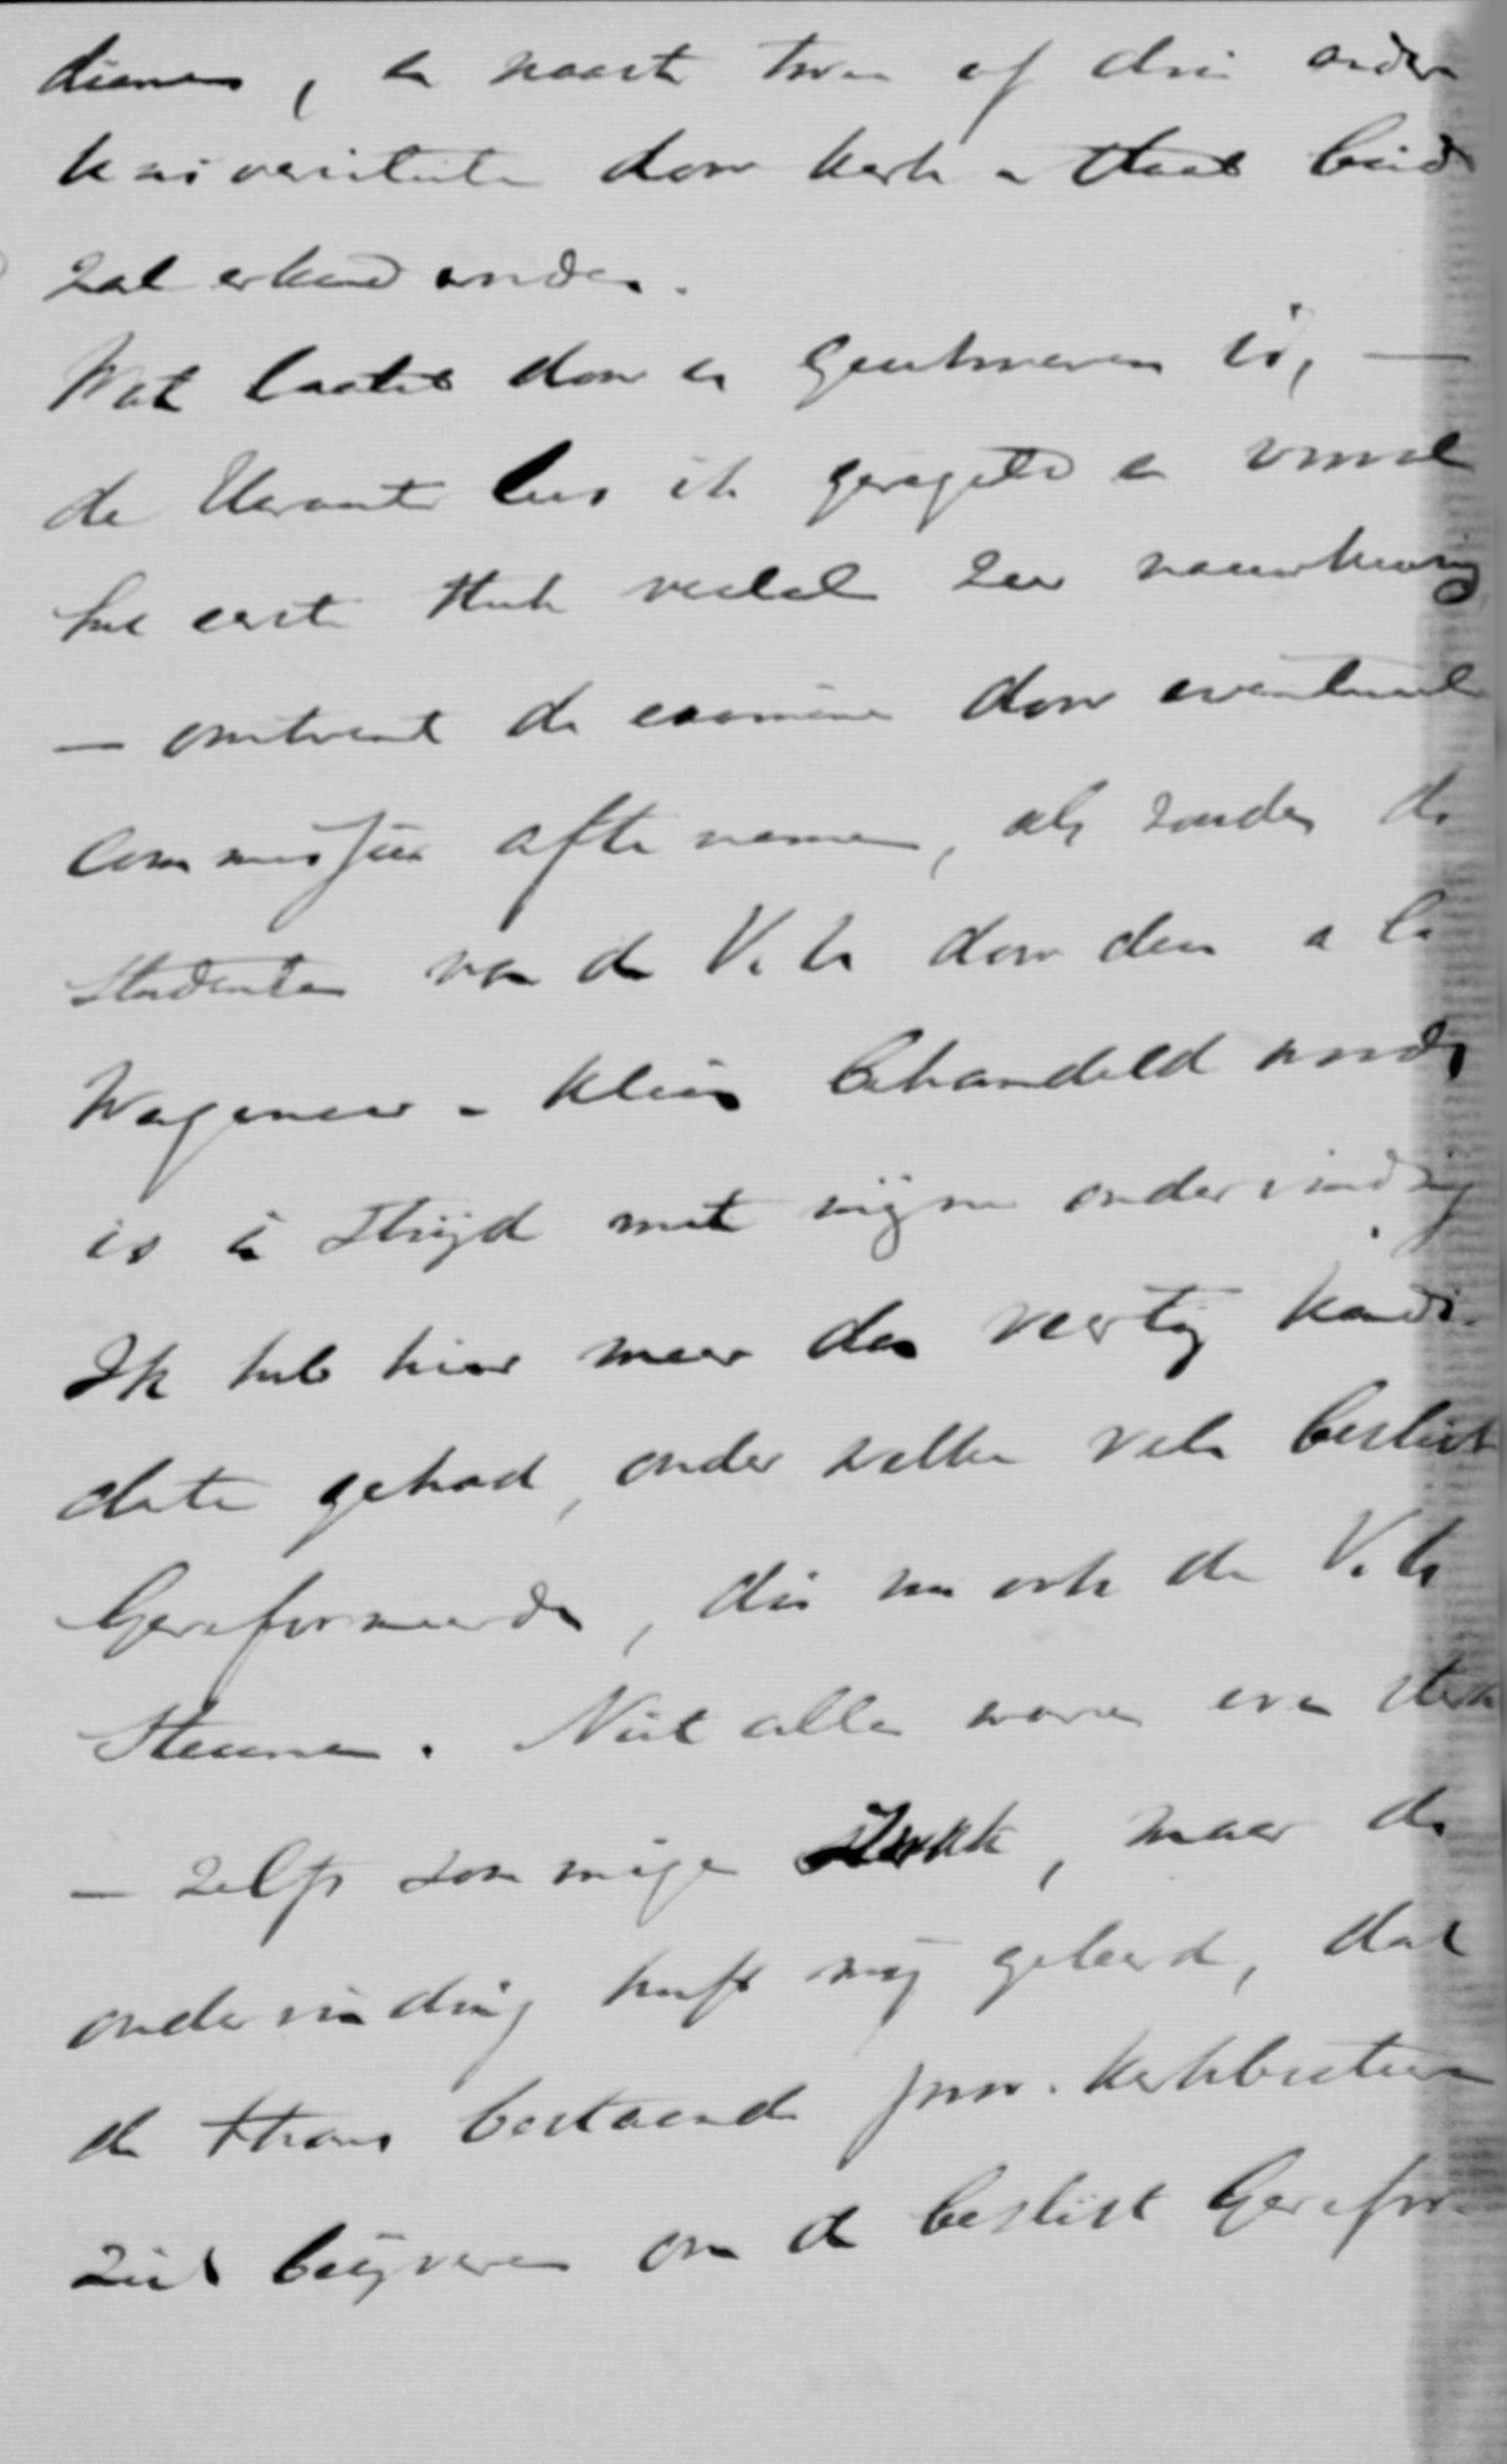 dienen, en naast twee of drie andere
universiteiten door kerk en staat beide
zal erkend worden.
Wat laatst door u geschreven is, —
de Heraut lees ik geregeld en vooral
het eerste stuk veelal zeer nauwkeurig
— omtrent de examina door eventueele
commissien afte nemen, als zouden de
studenten van de V. U. door den a la
Wagenaar en Klein behandeld worden
is in strijd met mijne ondervinding.
Ik heb hier meer dan veertig kandi-
daten gehad, onder welken vele beslist
Gereformeerden, die nu ook de V. U.
steunen. Niet allen waren even sterk
— zelfs sommige zwak, maar de
ondervinding heeft mij geleerd, dat
de thans bestaande prov. kerkbesturen
zich beijveren om de beslist Gerefor-